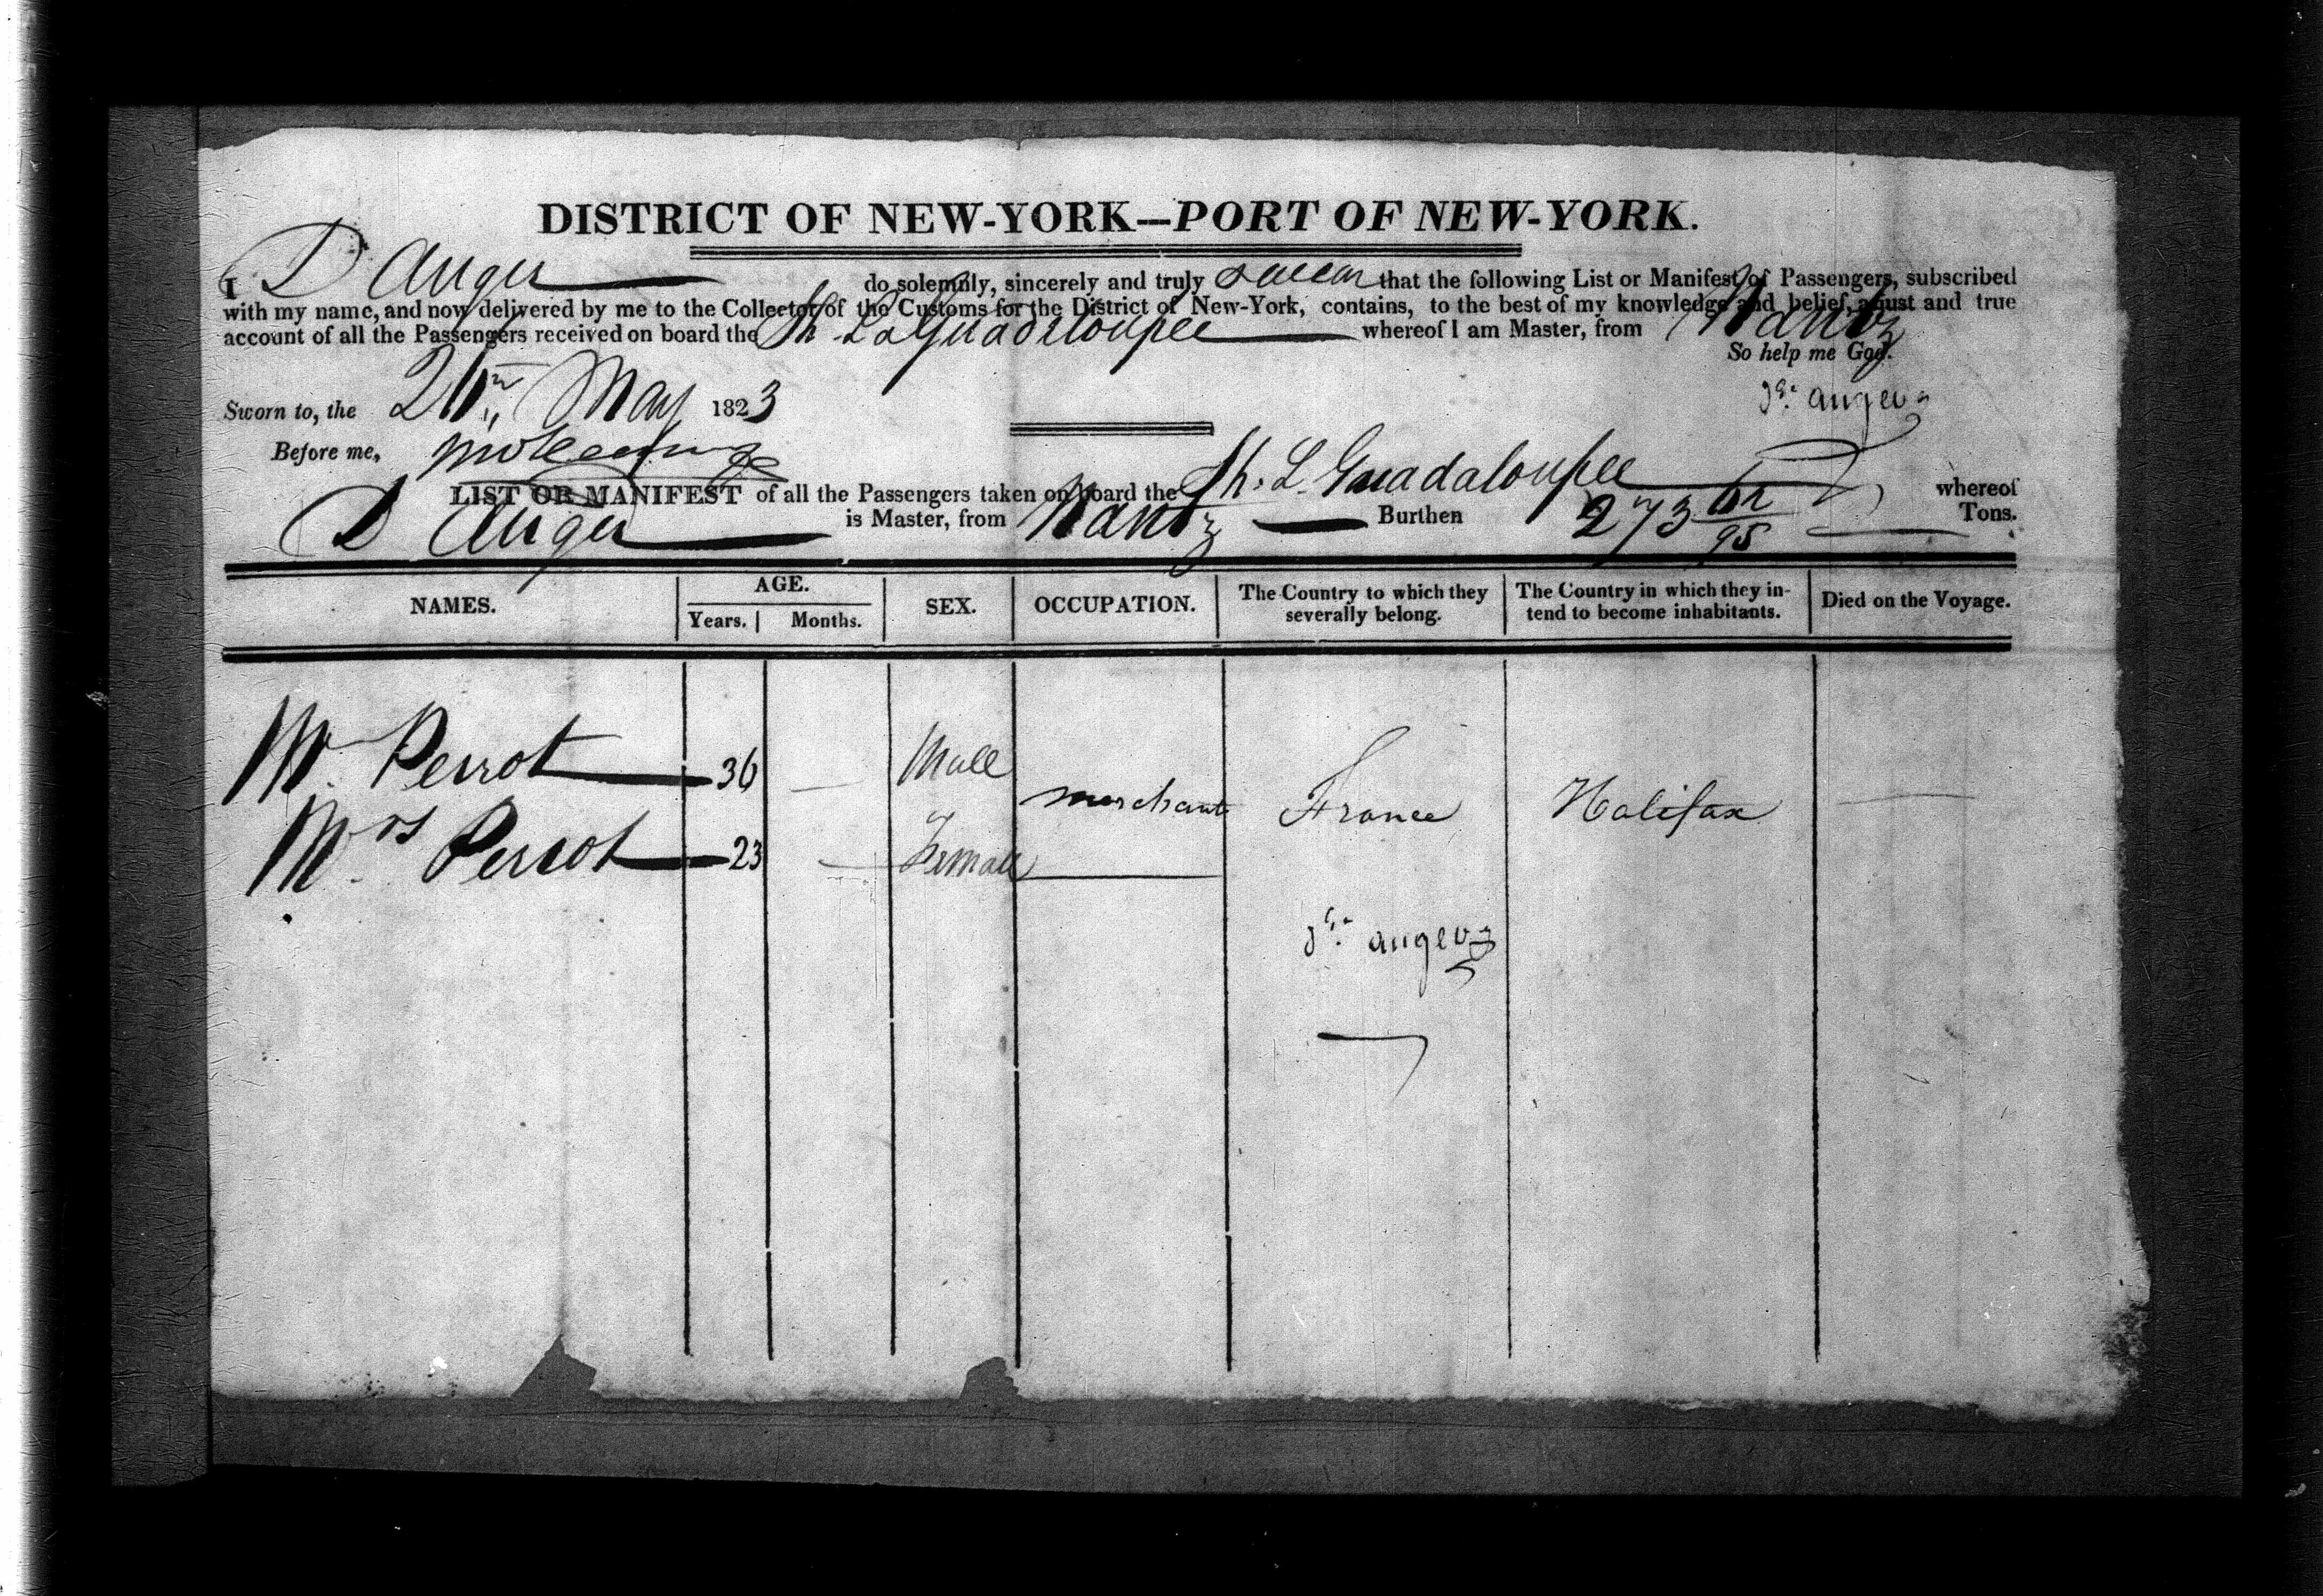 DISTRICT OF NEW-YORK—PORT OF NEW-YORK.
I D Auger do solemnly, sincerely and truly swear that the following List or Manifest of Passengers, subscribed
with my name, and now delivered by me to the Collector of the Customs for the District of New-York, contains, to the best of my knowledge and belief, a just and true
account of all the Passengers received on board the Sh. La Guadeloupee whereof I am Master, from Nantz
So help me God.
Sworn to, the May 1823
Auger
Before me,
LIST OR MANIFEST of all the Passengers taken on board the Sh. L Guadaloupee whereof
D Auger is Master, from Nantz Burthen 273 62/95 Tons.
NAMES. AGE. Years. Months. SEX. OCCUPATION. The Country to which they severally belong. The Country in which they intend to become inhabitants. Died on the Voyage.
Mr Perrot 36 — Male merchant France Halifax —
Mrs Perrot 23 — Female —
auger